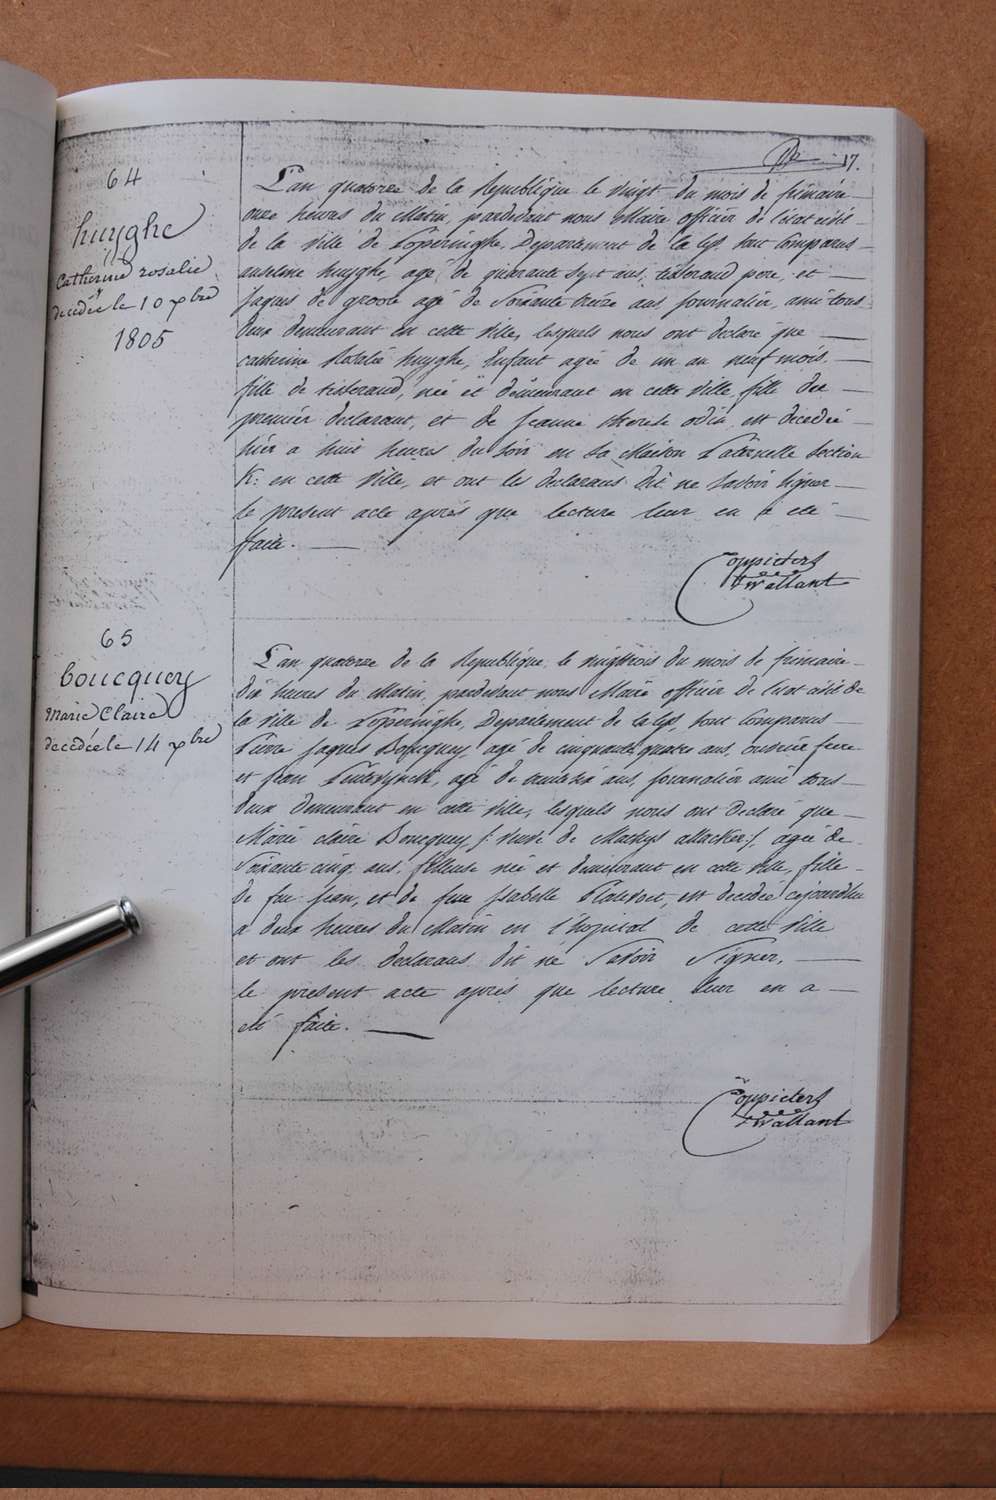 17.
64
huyghe
Catherine rosalie
decédée le 10 xbre
1805
L'an quatorze de la Republique le vingt du mois de frimaire
onze heures du Matin, pardevant nous Maire officier de l'etat civil
de la ville de Poperinghe, Departement de la Lys, sont Comparus
anselme huyghe, agé de quarante sept ans, tisserand pere, et
Jaques de groote agé de Soixante treize ans, journalier, ami tous
deux demeurant en cette ville, lesquels nous ont declaré que
catherine Rosalie huyghe, Enfant agée de un an neuf mois,
fille de tisserand, née et demeurant en cette ville, fille du
premier declarant, et de Jeanne therese odin, est decedée
hier a huit heures du soir en sa Maison Paternelle Section
K: en cette ville, et ont les declarans dit ne savoir signer
le present acte aprés que lecture leur en a eté
faite.
Coppieters
t'wallant
65
boucquey
Marie Claire
decédée le 14 xbre
L'an quatorze de la Republique, le vingttrois du mois de frimaire
dix heures du Matin, pardevant nous Maire officier de l'etat civil de
la ville de Poperinghe, Departement de la Lys, sont Comparus
Pierre Jaques Boucquey, agé de cinquante quatre ans, frere
et Jean, agé de trente six ans, journalier ami tous
deux demeurant en cette ville, lesquels nous ont declaré que
Marie claire Boucquey /: veuve de Mathys allacker :/, agée de
Soixante cinq ans, fileuse née et demeurant en cette ville, fille
de feu Jean, et de feue Isabelle, est decedée cejourdhui
a deux heures du Matin en l'hopital de cette ville
et ont les declarans dit ne Savoir Signer,
le present acte apres que lecture leur en a
eté faite.
Coppieters
t'wallant